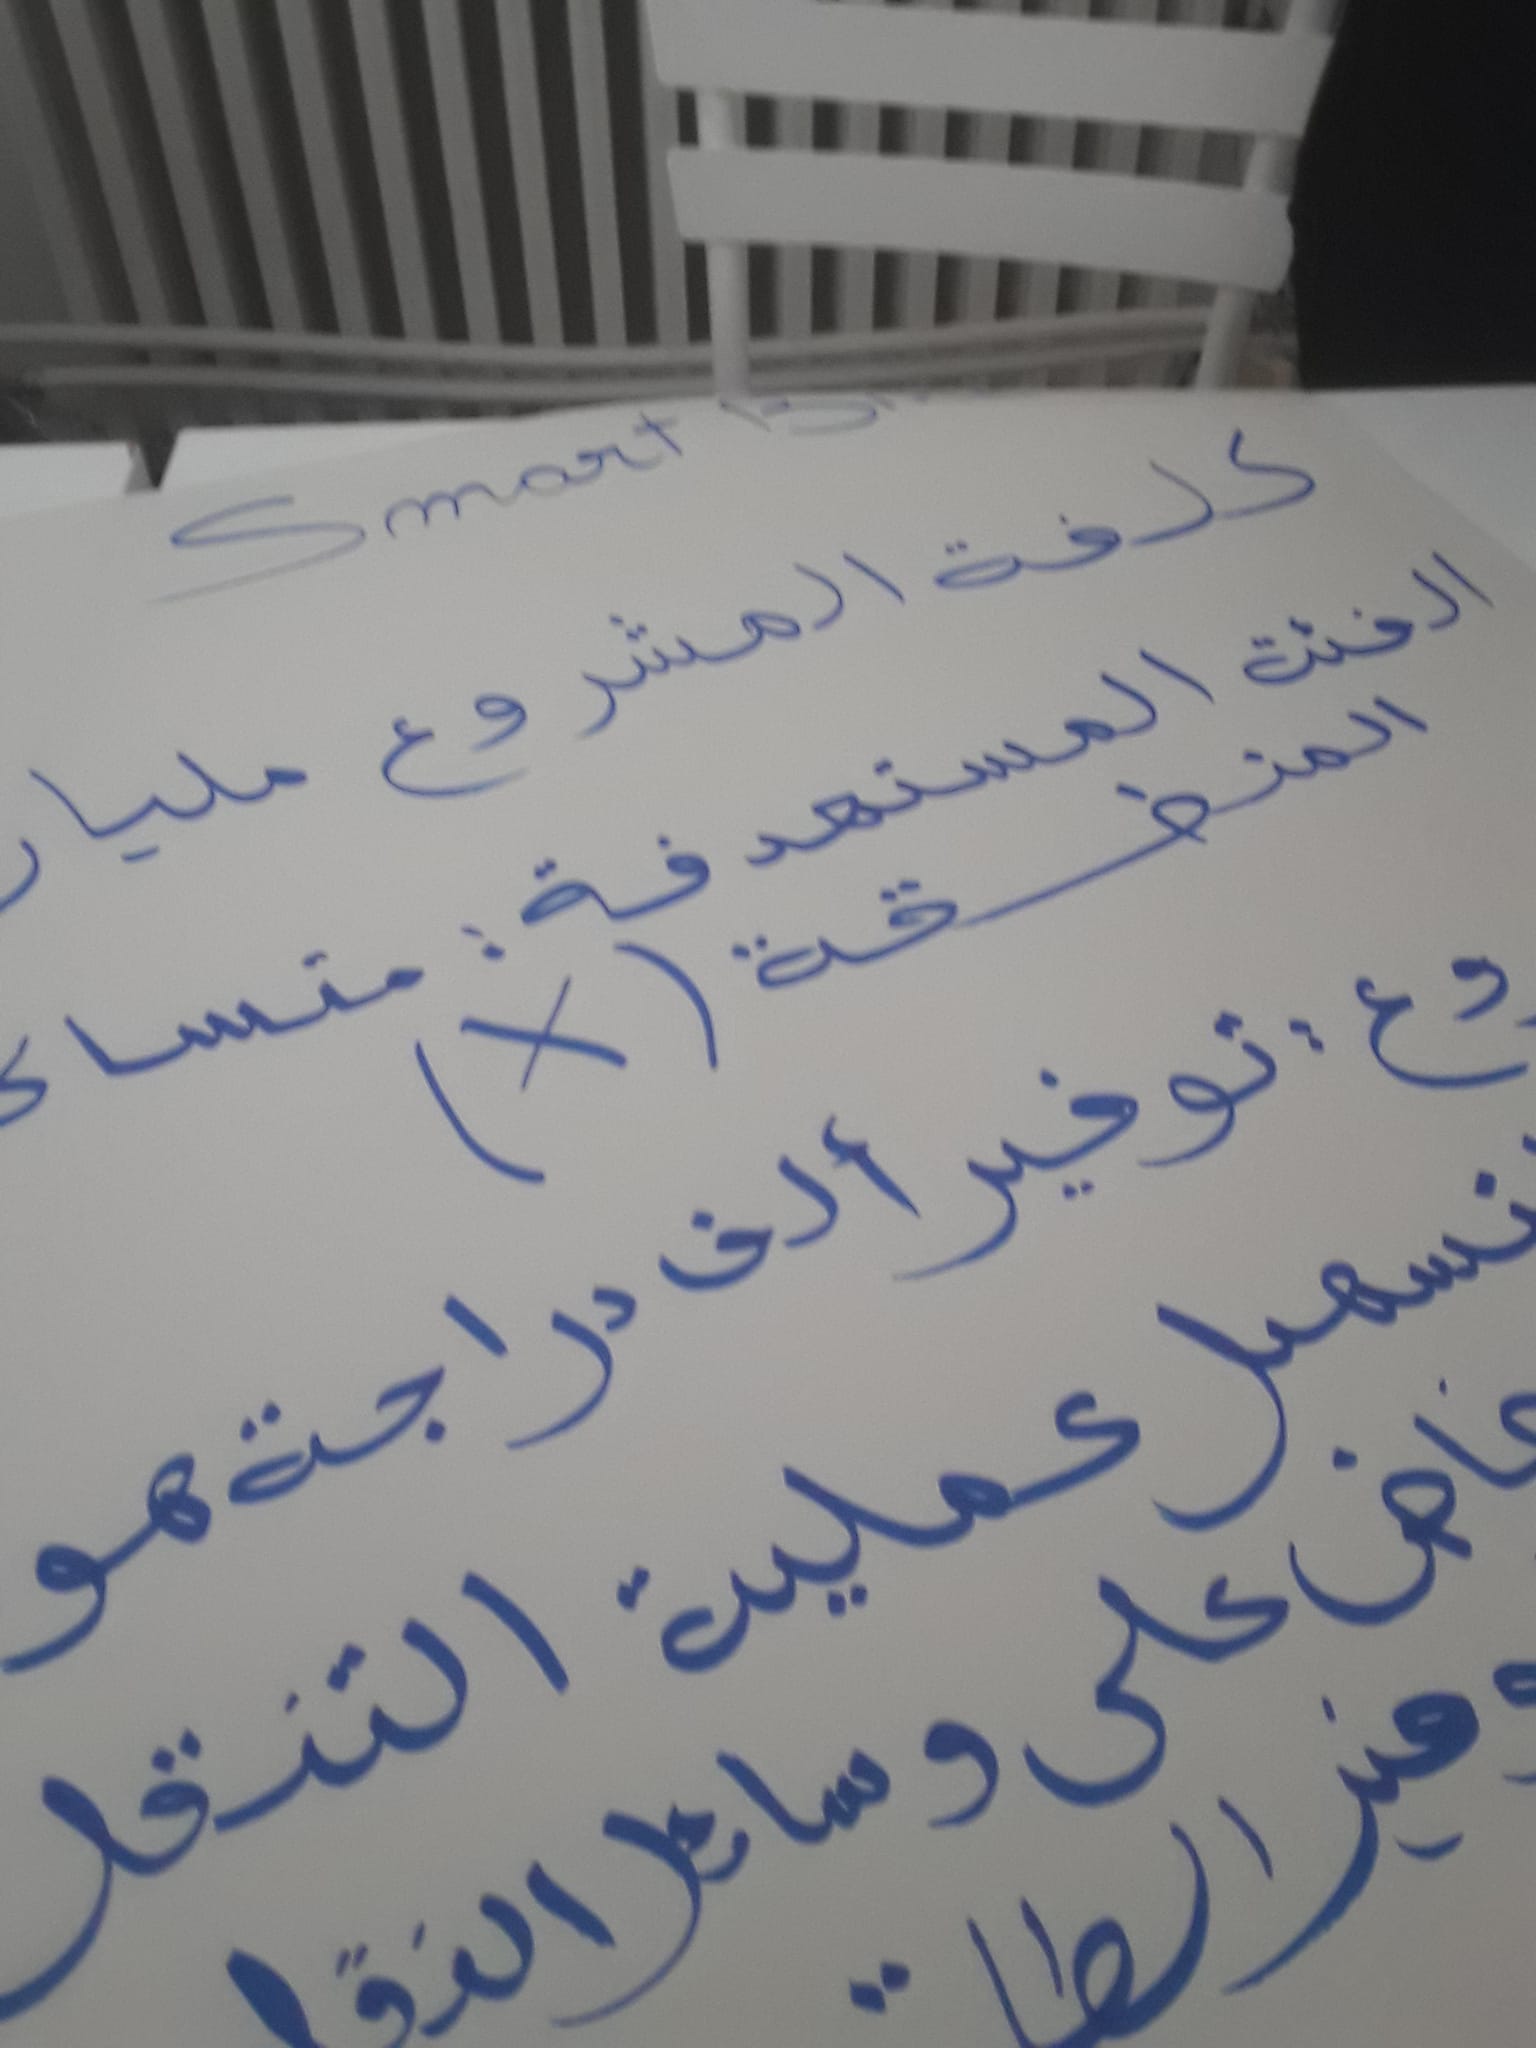 Smart
كلفة المشروع مليار
الفئة المستهدفة: متساك
المنطقة (X)
وع: توفير ألف دراجة هو
تسهيل عملية التنقل
على وسائل النقل